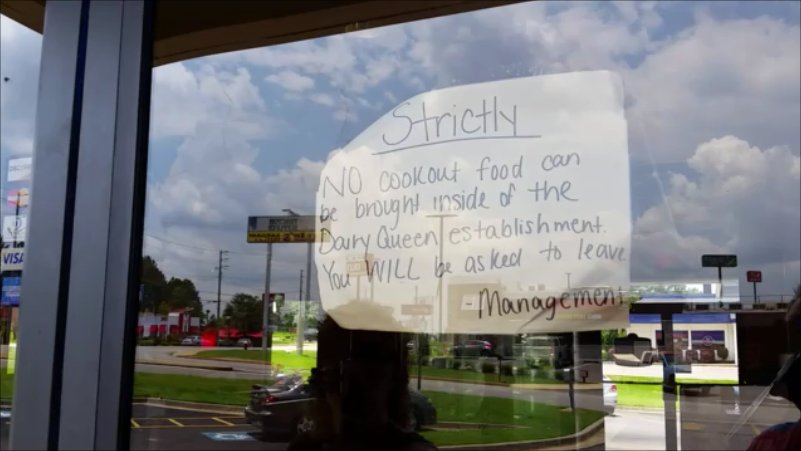 Strictly
NO cookout food can
be brought inside of the
Dairy Queen establishment.
You WILL be asked to leave
Management
VISA